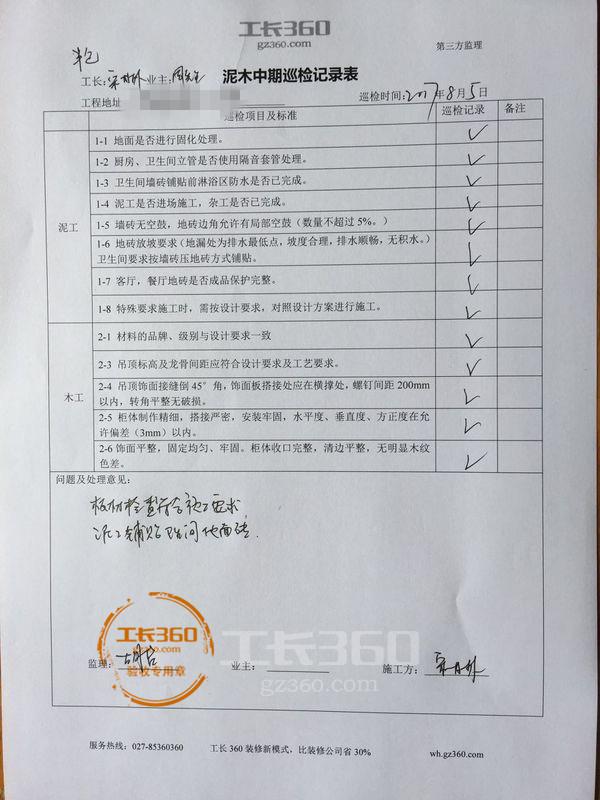 工长360
gz360.com
第三方监理
半包
工长: 业主:周先生
泥木中期巡检记录表
工程地址
巡检时间:2017年8月5日
巡检项目及标准
巡检记录
备注
泥工
1-1 地面是否进行固化处理。
1-2 厨房、卫生间立管是否使用隔音套管处理。
1-3 卫生间墙砖铺贴前淋浴区防水是否已完成。
1-4 泥工是否进场施工,杂工是否已完成。
1-5 墙砖无空鼓,地砖边角允许有局部空鼓(数量不超过5%。)
1-6 地砖放坡要求(地漏处为排水最低点,坡度合理,排水顺畅,无积水。)
卫生间要求按墙砖压地砖方式铺贴。
1-7 客厅,餐厅地砖是否成品保护完整。
1-8 特殊要求施工时,需按设计要求,对照设计方案进行施工。
木工
2-1 材料的品牌、级别与设计要求一致
2-3 吊顶标高及龙骨间距应符合设计要求及工艺要求。
2-4 吊顶饰面接缝倒45°角,饰面板搭接处应在横撑处,螺钉间距200mm
以内,转角平整无破损。
2-5 柜体制作精细,搭接严密,安装牢固,水平度、垂直度、方正度在允
许偏差(3mm)以内。
2-6 饰面平整,固定均匀、牢固。柜体收口完整,清边平整,无明显木纹
色差。
问题及处理意见:
板材检查符合施工要求
泥工铺贴卫生间地面砖.
工长360
验收专用章
工长360
gz360.com
监理:
业主:
施工方:
服务热线:027-85360360
工长360装修新模式,比装修公司省30%
wh.gz360.com